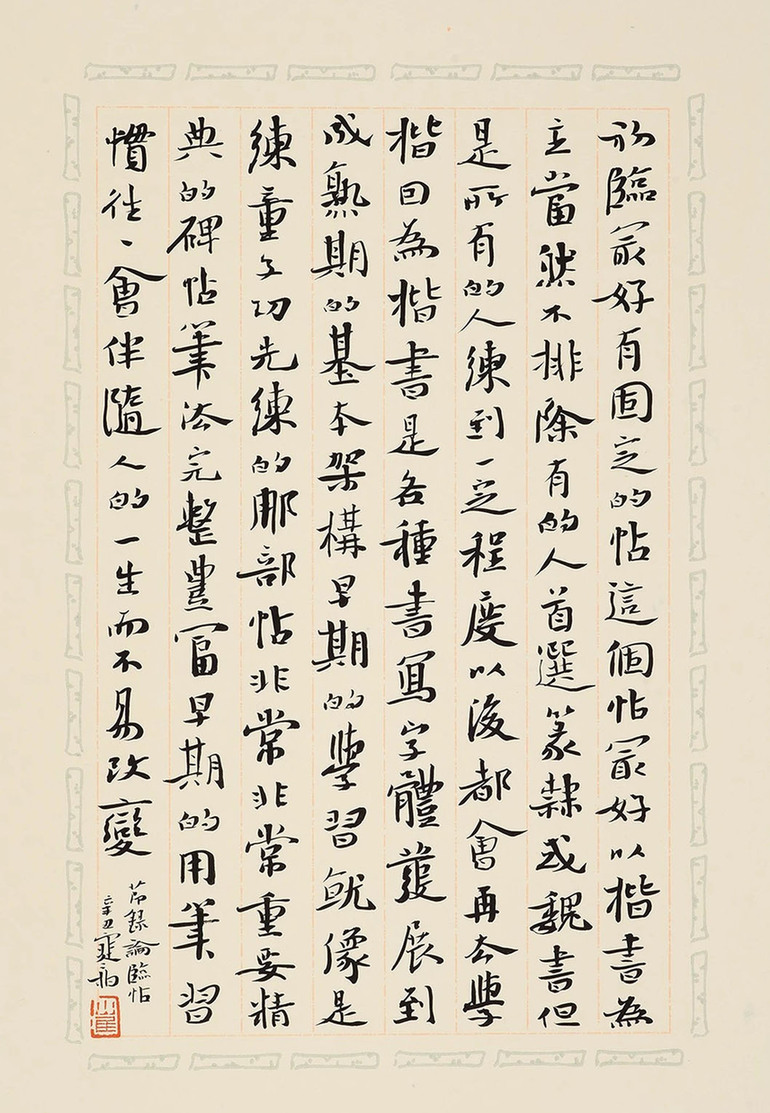 初臨㝡好有固定的帖這個帖㝡好以楷書為
主當然不排除有的人首選篆隸或魏書但
是所有的人練到一定程度以後都會再去學
楷因為楷書是各種書寫字體發展到
成熟期的基本架構早期的學習就像是
練童子功先練的那部帖非常非常重要精
典的碑帖筆法完整豐富早期的用筆習
慣往〻會伴隨人的一生而不易改變
節錄論臨帖
辛丑